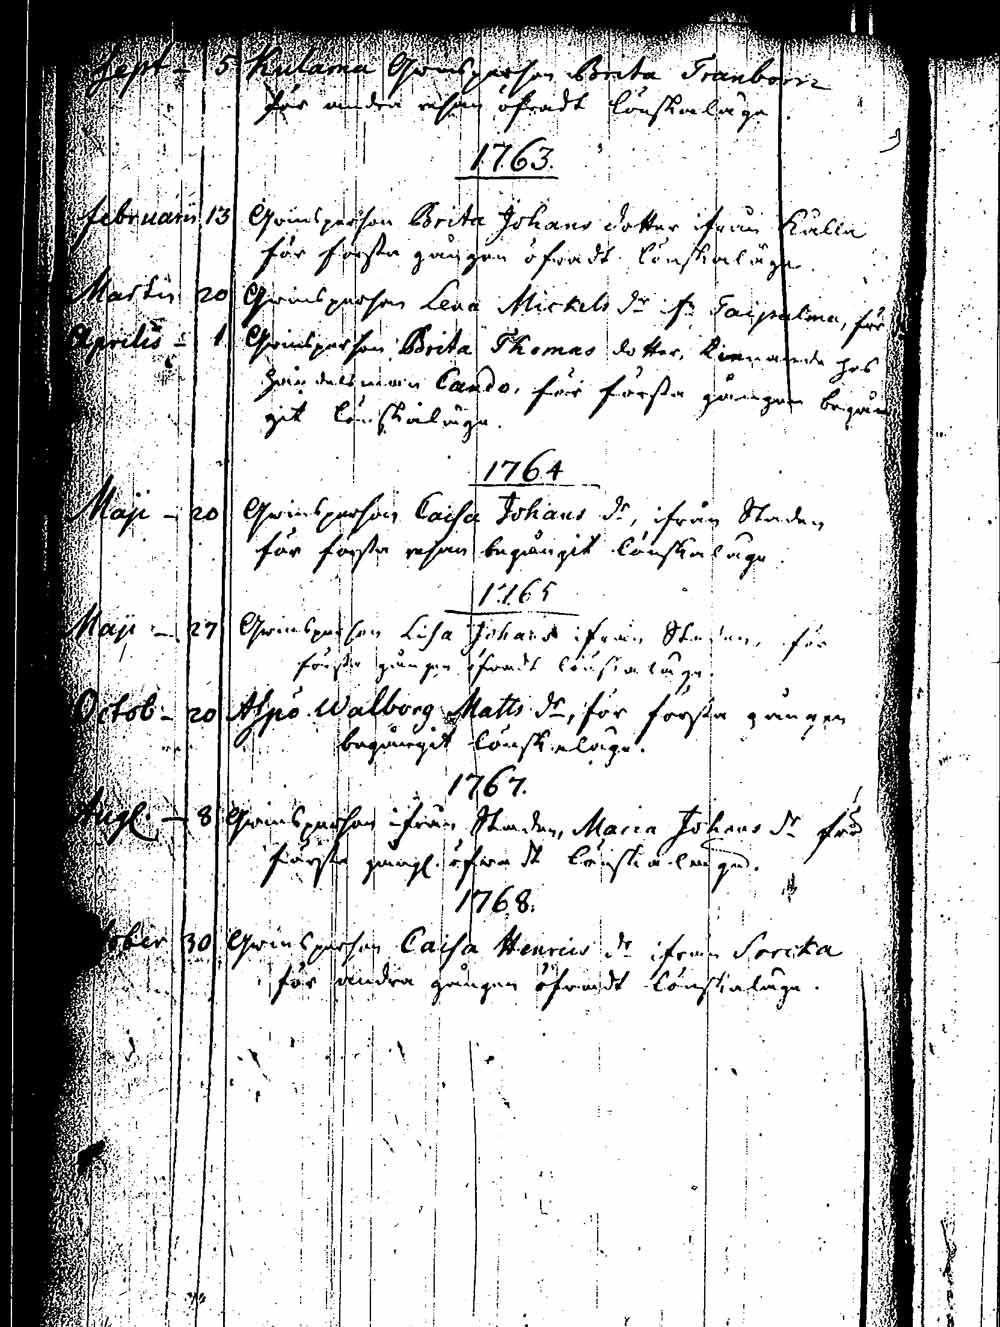 Sept - 5 Kulama Qvinsperson Brita Tranborn
för andra resan öfvadt lönskaläge.
1763.
februarii 13 Qvinsperson Brita Johans dotter ifrån Kalla
för första gången öfvadt lönskaläge.
Martii 20 Qvinsperson Lena Mickels dr fr Taipalma, för
Aprilis - 1 Qvinsperson Brita Thomas dotter, tienande hos
Cando, för första gången begån
git lönskaläge.
1764
Maji - 20 Qvinsperson Caisa Johans dr, ifrån Staden
för första resan begångit lönskaläge.
1765
Maji - 27 Qvinsperson Lisa Johans ifrån Staden, för
första gången öfvadt lönskaläge.
Octob - 20 Alpo Walborg Matts dr, för första gången
begångit lönskaläge.
1767.
Aug. - 8 Qvinsperson ifrån Staden, Maria Johans dr för
första gång. öfvadt lönskaläge.
1768.
tober 30 Qvinsperson Caisa Henrics dr ifrån Sorcka
för andra gången öfvadt lönskaläge.